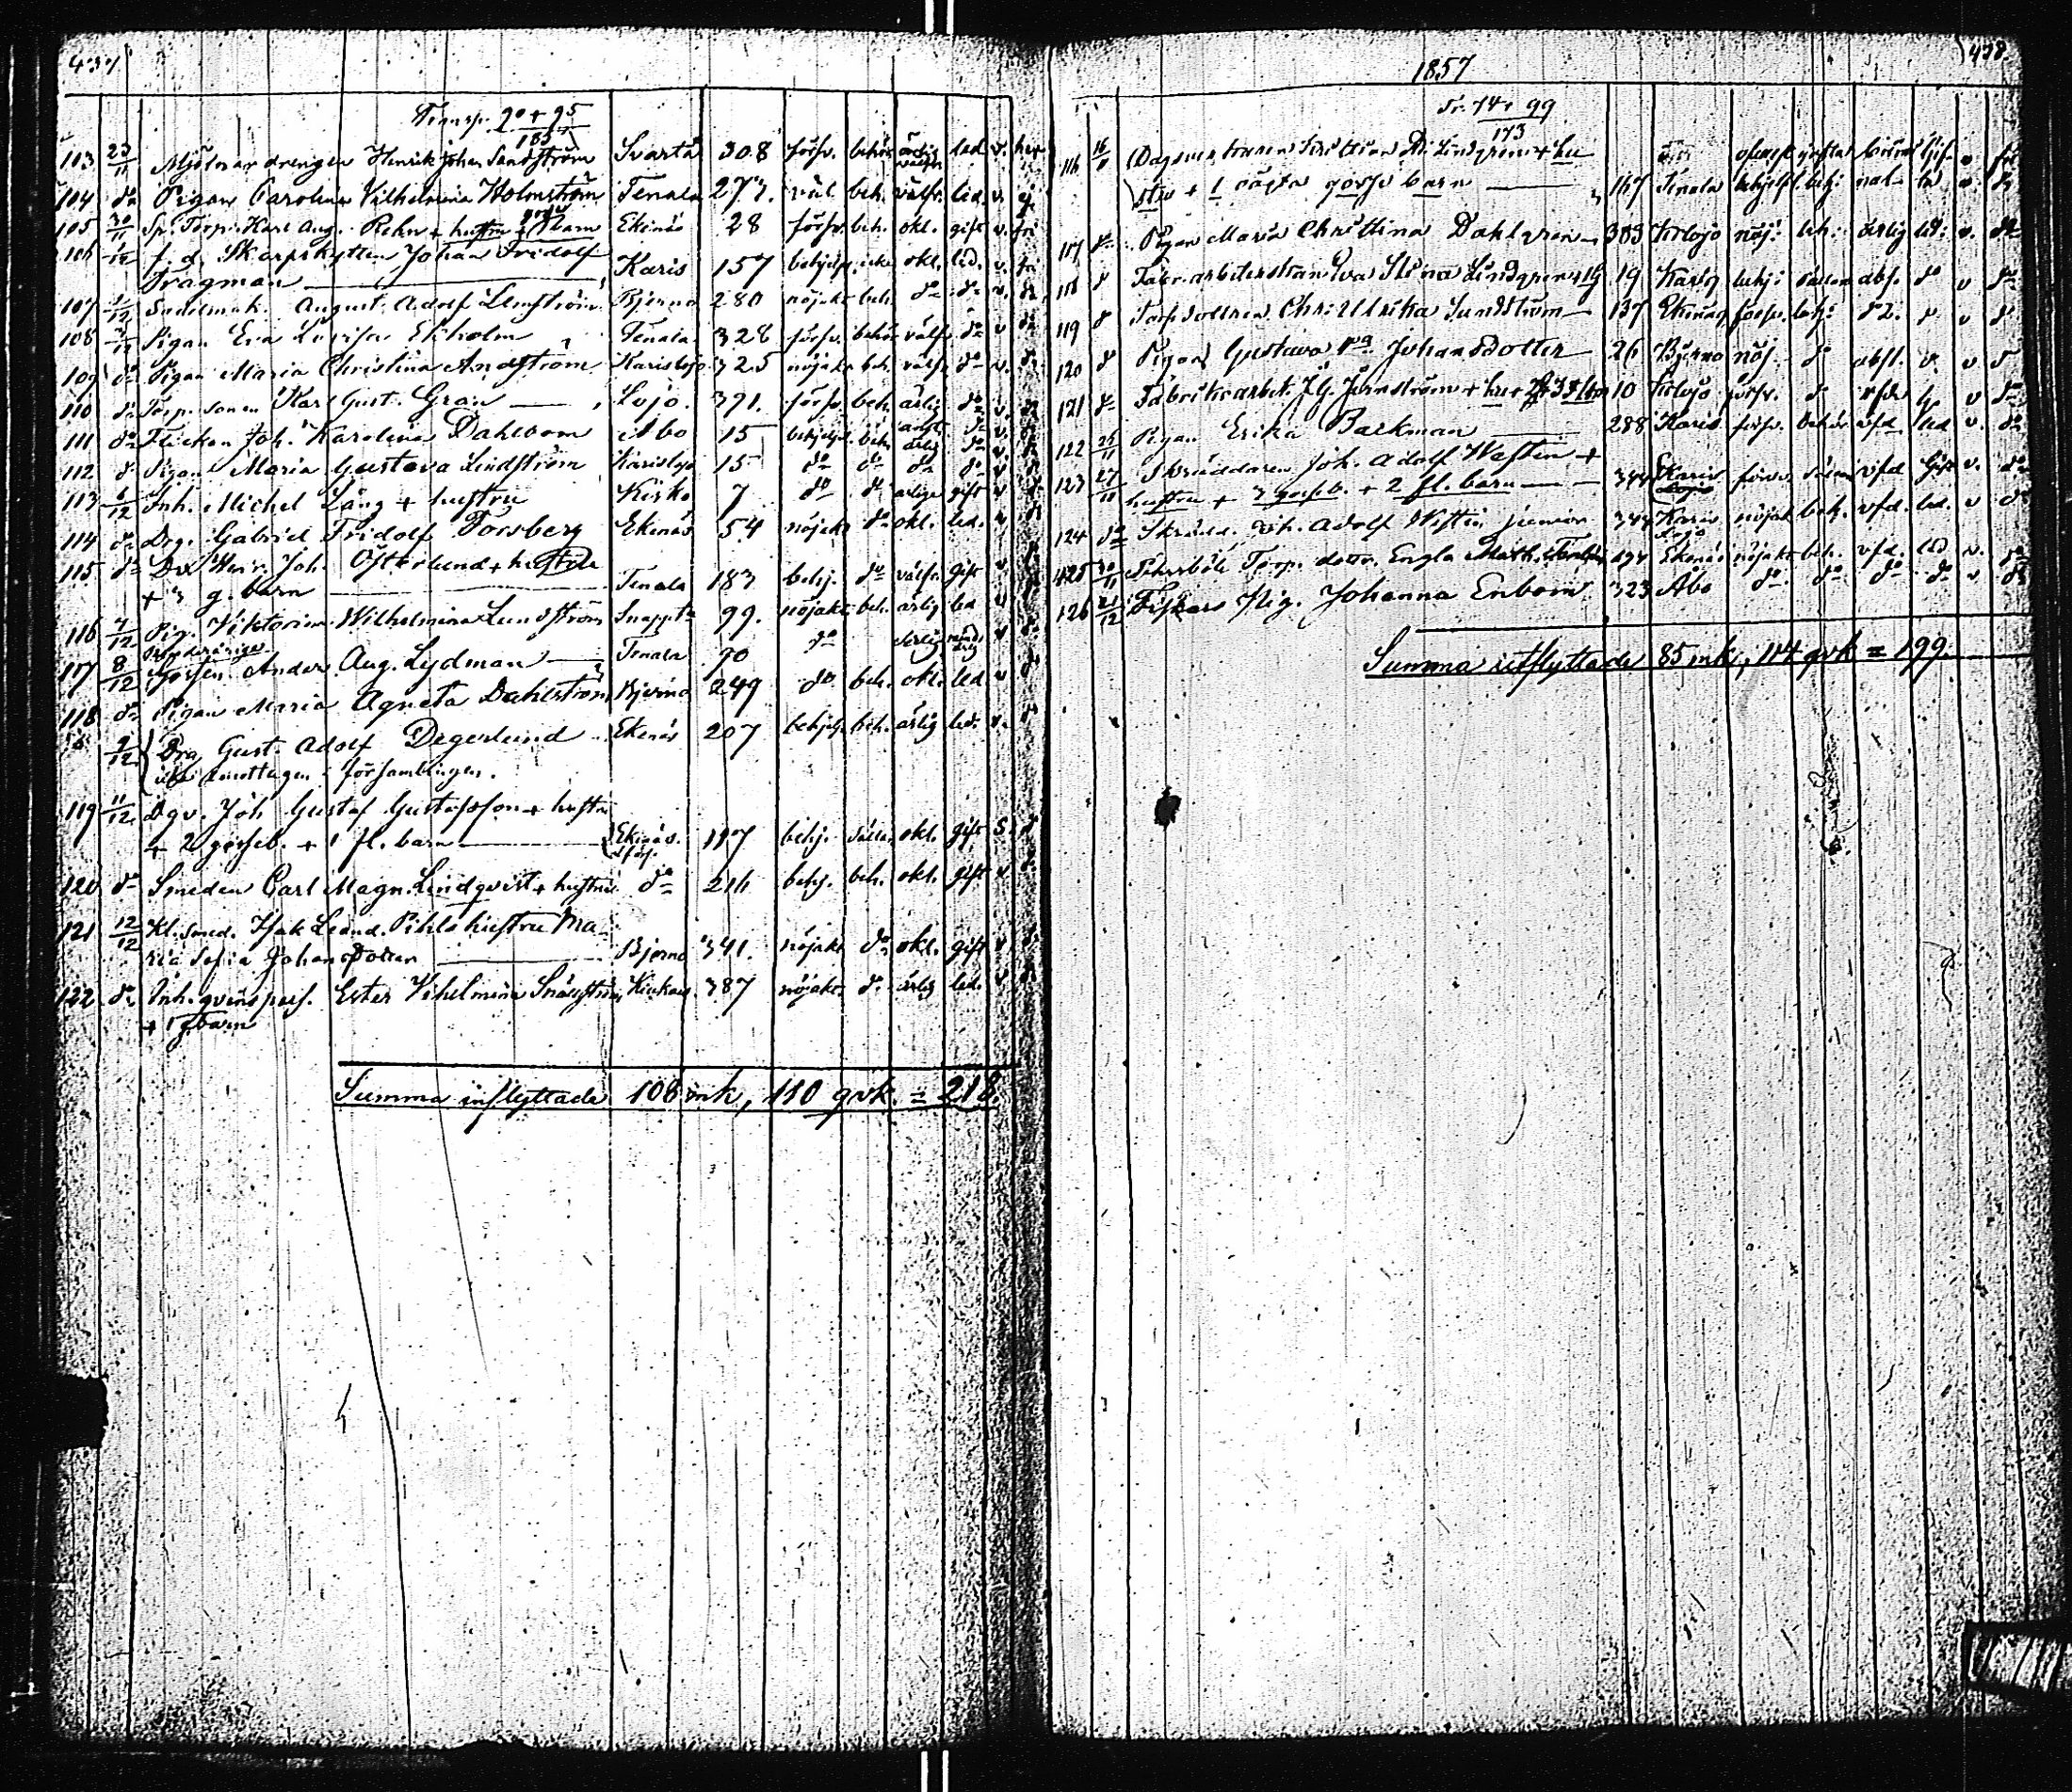 437
Transp. 90 + 95
185
103 23/11 Mjölnar drengen Henrik Johan Sandström Svartå 308 försv. behör. ärlig välfr. led. v.
104 do Pigan Carolina Vilhelmina Holmström Tenala 277. väl beh. välfr. led. v.
105 30/11 Sp. Torp. Karl Aug. Rehn + hustru + barn Ekenäs 28 försv. beh. okl. gift v. fri
106 1/12 f.d. Skarpskytten Johan Fridolf
Tragman Karis 157 behjelp. icke okl. led. v. fri
107 1/12 Sadelmak. August Adolf Lemström Bjerno 280 nöjakt beh. do do v. do
108 Pigan Eva Lovisa Ekholm Tenala 328 försv. behör. välfr. do v do
109 do Pigan Maria Christina Andström Karislojo 325 nöjakt beh. välfr. do v. do
110 do Torp. sonen Karl Gust. Gran Lojo. 391. försv. beh. ärlig do v. do
111 do Flickan Joh. Karolina Dahlbom Åbo 15 behjelpl. beh. ärlig do v.
112 d Pigan Maria Gustava Lindström Karislojo 15 do do do do v
113 6/12 Inh. Michel Lång + hustru Kisko 7 do do ärliga gift v
114 do Drg. Gabriel Fridolf Forsberg Ekenäs 54 nöjakt do okl. led. v
115 do Dr. Henr. Joh. Österlund + hustru
+ 3 g. barn Tenala 183 behj. do välfr. gift v
116 7/12 Pig. Viktorina Wilhelmina Lundström Snappt. 99. nöjakt beh. ärlig led v
117 8/12 Gossen Anders Aug. Lydman Tenala 90 do ärlig v do
118 do Pigan Maria Agneta Dahlström Bjerno 249 do beh. okl. led v do
9/12 Drg Gust. Adolf Degerlund Ekenäs 207 behjelp. beh. ärlig led. v.
icke emottagen i församlingen.
119 11/12 Dgv. Joh Gustaf Gustafsson + hustru
+ 2 gosseb. + 1 fl. barn Ekenäs. 117 behj. sällan okl. gift S. do
120 do Smeden Carl Magn. Lindqvist + hustru do 216 behj. beh. okl. gift v do
121 12/12 Kl. smed. Isak Leand. Pihls hustru Ma-
ria Sofia Johansdotter Bjerno 341. nöjakt do okl. gift v do
122 do Inh. qvinspers. Ester Vihelmina Snällström Kiukais. 387 nöjakt. do ärlig led. v
+ 1 g. barn
Summa inflyttade 108 mk, 110 qvk. = 218.
438
1857
Tr. 74 + 99
173
116 16/11 Lindgren + hu
stru + 1 oägta gosse barn 167 Tenala behjelpl. behj:
117 do Pigan Maria Christina Dahlgren 303 Kslojo nöj: beh: ärlig led: v. do
118 d Fabr. arbeterskan Eva Stina Lindgren 19 Karis behj: sällan abs. do v do
119 d Torp dottren Chri: Ulrika Sundström 137 Ekenäs försv. behj: do. d v d
120 d Pigan Gustava Johansdotter 26 Bjerno nöj. do abst. d. v
121 do Fabriksarbet. J. G. Jernström + hu 10 Kslojo försv. d v do
122 25/11 Pigan Erika Backman 288 Karis försv. behör vfd led v. do
123 27/11 Skräddaren Joh. Adolf Westin +
hustru + 3 gosseb. + 2 fl. barn 344 Karis försv. sällan vfd Gift v. do
124 do Skrädd. Joh. Adolf Westin junior 344 Karis Lojo nöjakt beh. vfd. led. v d
125 30/11 Torp. dottr. Engla Math. Ekenäs nöjakt beh. vfd. led v. do
126 21/12 Fiskars Pig. Johanna Enbom 323 Åbo do. do do do v do
Summa utflyttade 85 mk, 114 qvk = 199.